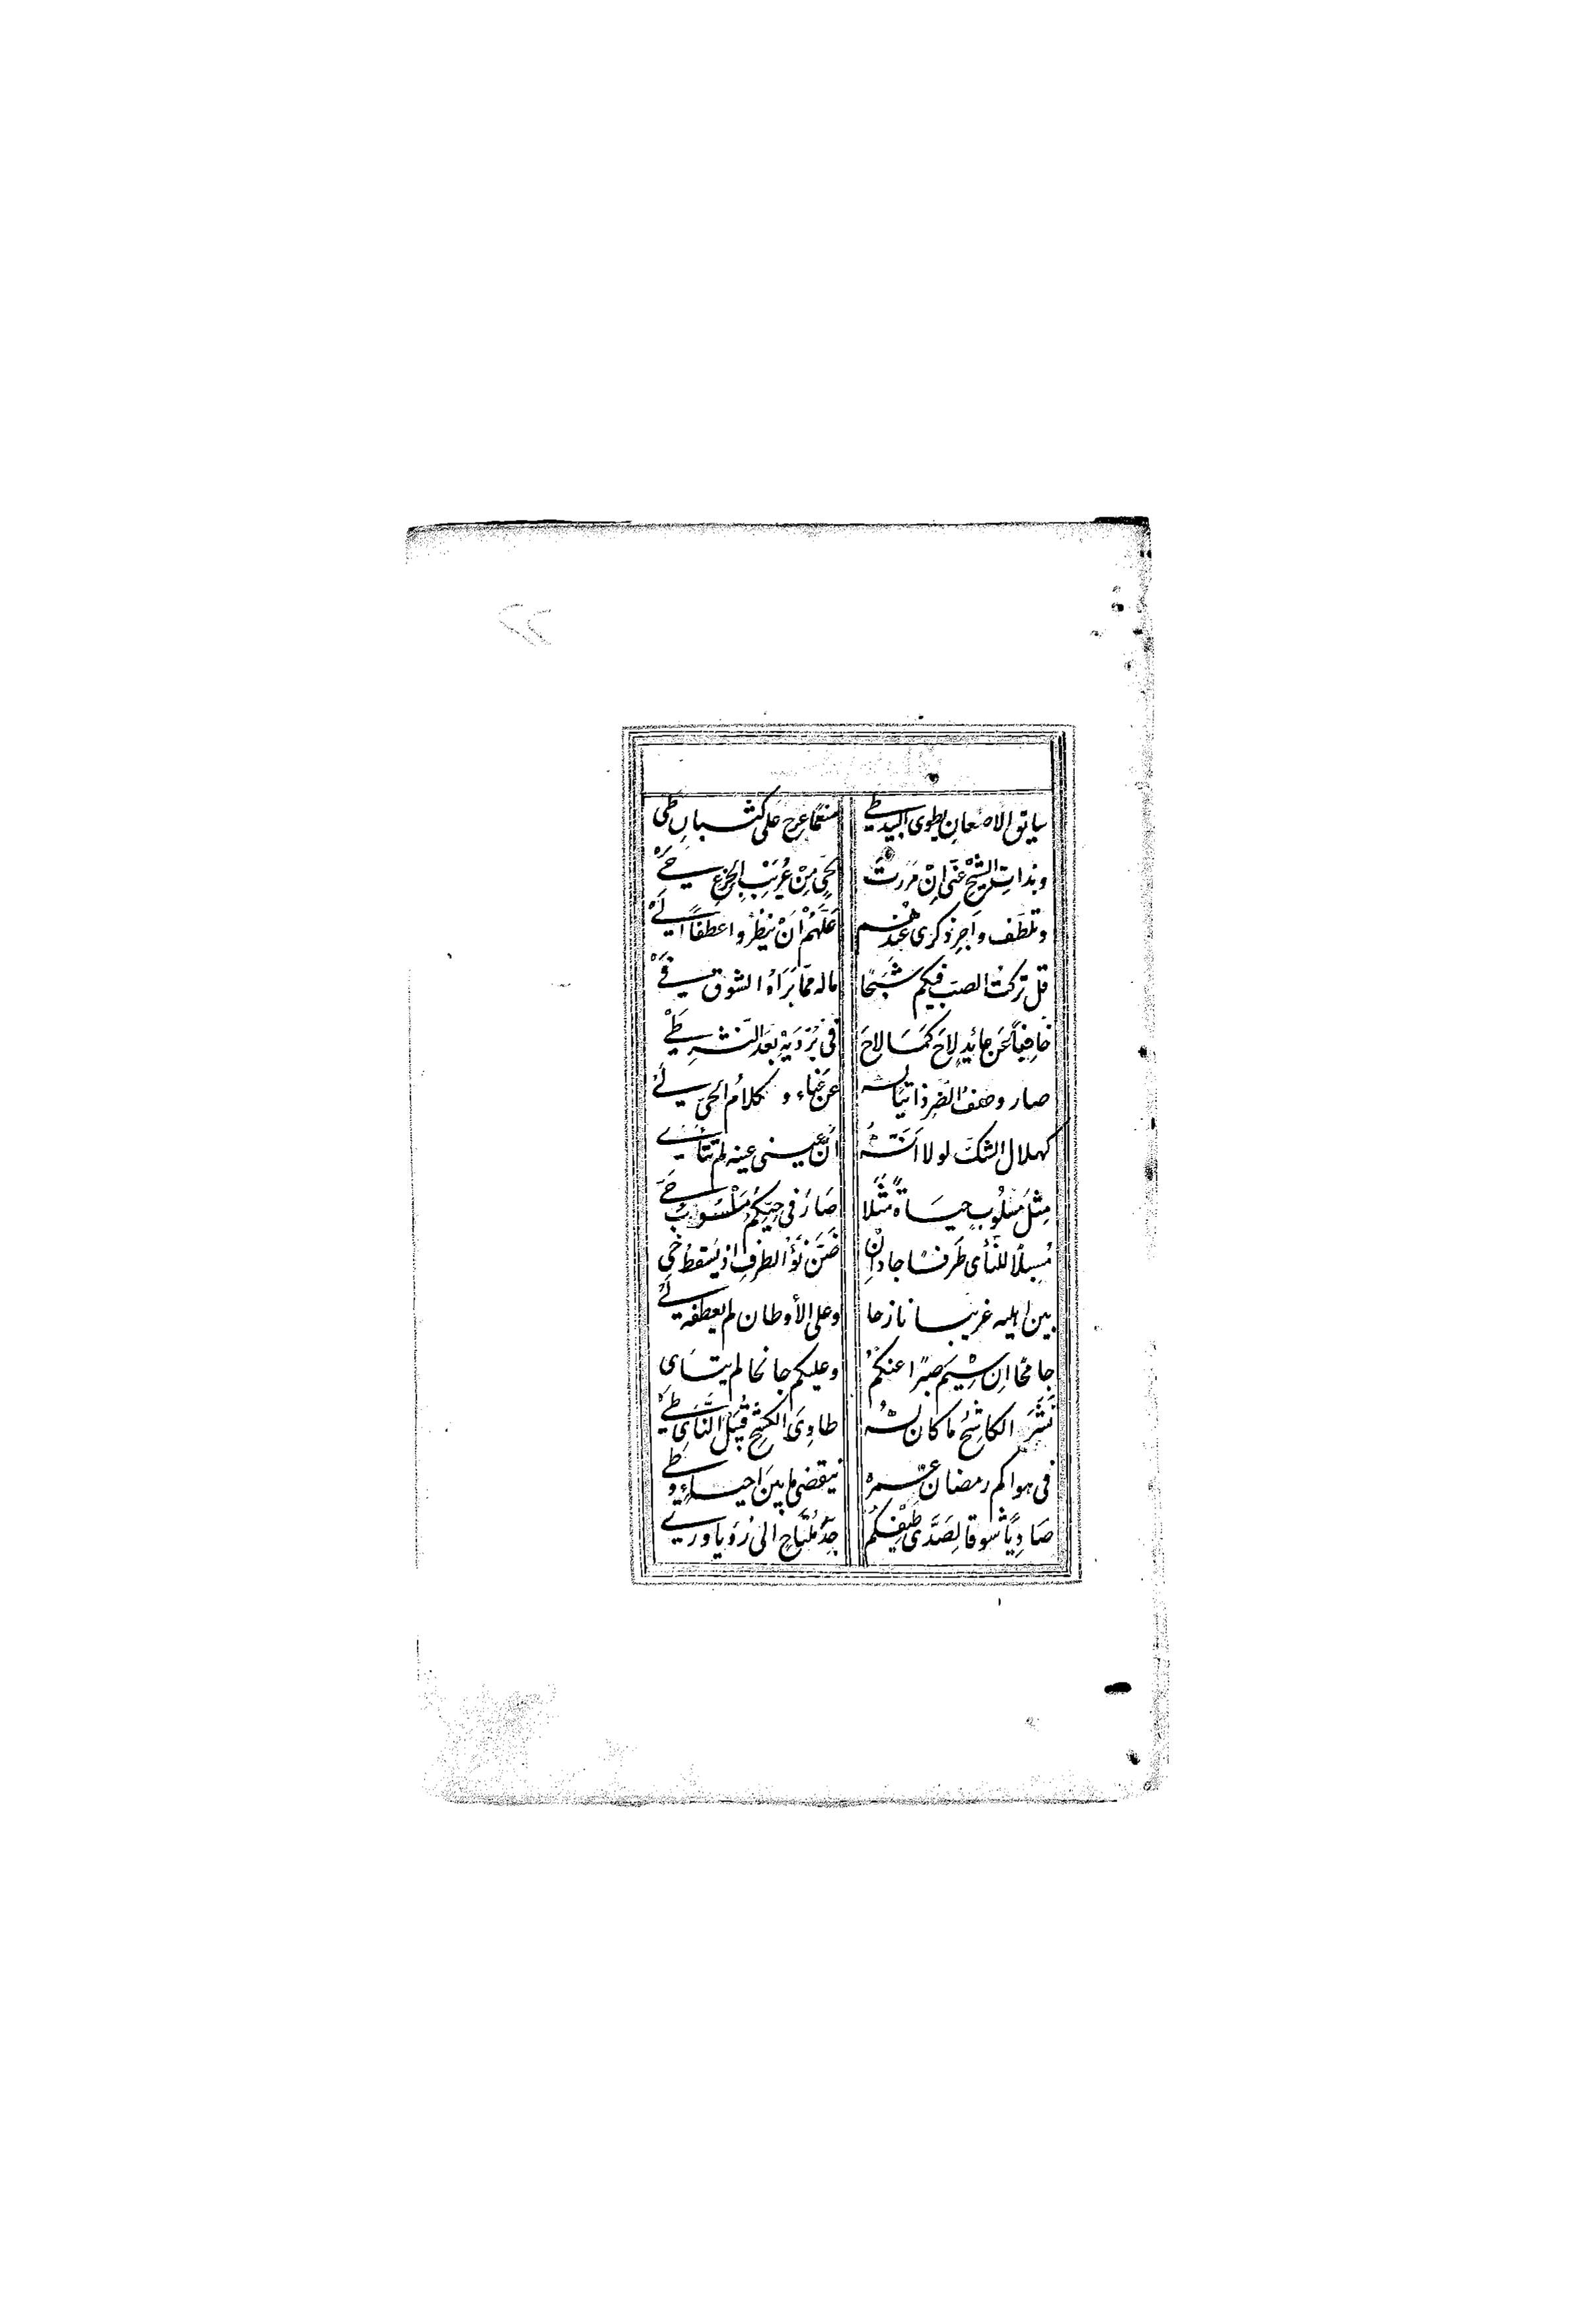 سائق الاضعان يطوى البيد طي منعما عرج على كثبان طي
وبذات الشيح عنى ان مررت بحي من عريب الجزع حي
وتلطف واجر ذكرى عندهم علهم ان ينظروا عطفا الي
قل تركت الصب فيكم شبحا ماله مما براه الشوق في
خافيا عن عائد لاح كما لاح فى برديه بعد النشر طي
صار وصف الضر ذاتيا له عن عناء و كلام الحي لي
كهلال الشك لولا انه ان عينى عينه لم تتأي
مثل مسلوب حياة مثلا صار فى حبكم ملسوب حي
مسبلا للنأى طرفا جاد ان ضن نؤ الطرف اذ يسقط خي
بين اهليه غريبا نازحا وعلى الأوطان لم يعطفه لي
جامحا ان سيم صبرا عنكم وعليكم جانحا لم يتأى
نشر الكاشح ما كان له طاوى الكشح قبيل النأى طي
فى هواكم رمضان عمره ينقضى ما بين احياء و طي
صاديا شوقا لصدى طيفكم جد ملتاح الى رؤيا وري